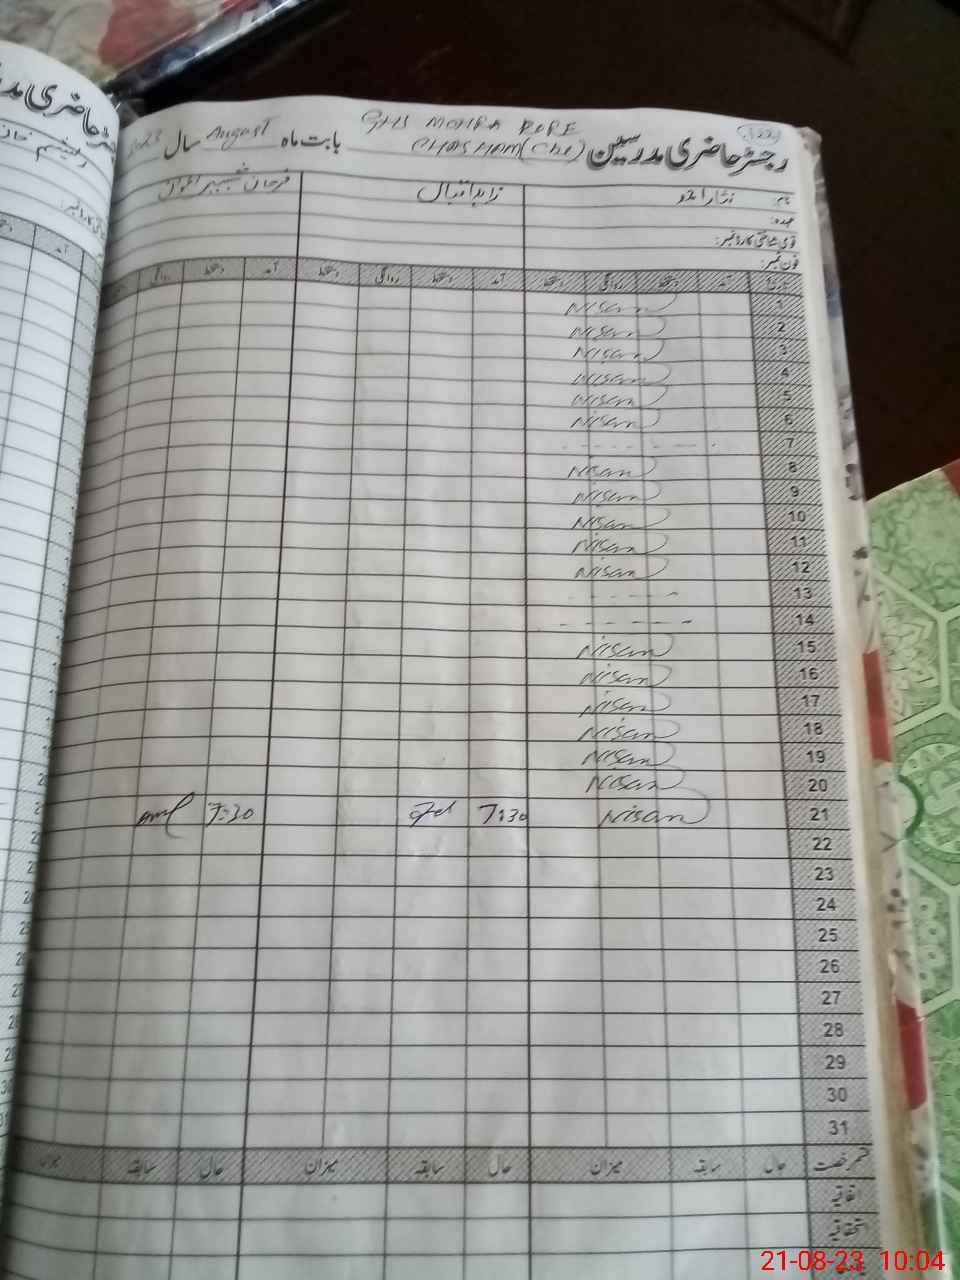 GHS MOHRA RORE
رجسٹر حاضری مدرسین
بابت ماہ August سال 2023
نام: نثار احمد زاہد اقبال فرحان شبیر اعوان
عہدہ:
قومی شناختی کارڈ نمبر:
فون نمبر:
تاریخ آمد دستخط روانگی دستخط آمد دستخط روانگی دستخط آمد دستخط روانگی
1 Nisar
2 Nisar
3 Nisar
4 Nisar
5 Nisar
6 Nisar
7
8 Nisar
9 Nisar
10 Nisar
11 Nisar
12 Nisar
13
14
15 Nisar
16 Nisar
17 Nisar
18 Nisar
19 Nisar
20 Nisar
21 Nisar 7:30 7:30
22
23
24
25
26
27
28
29
30
31
قسم رخصت حال سابقہ میزان حال سابقہ میزان حال سابقہ میزان
اتفاقیہ
استحقاقیہ
21-08-23 10:04